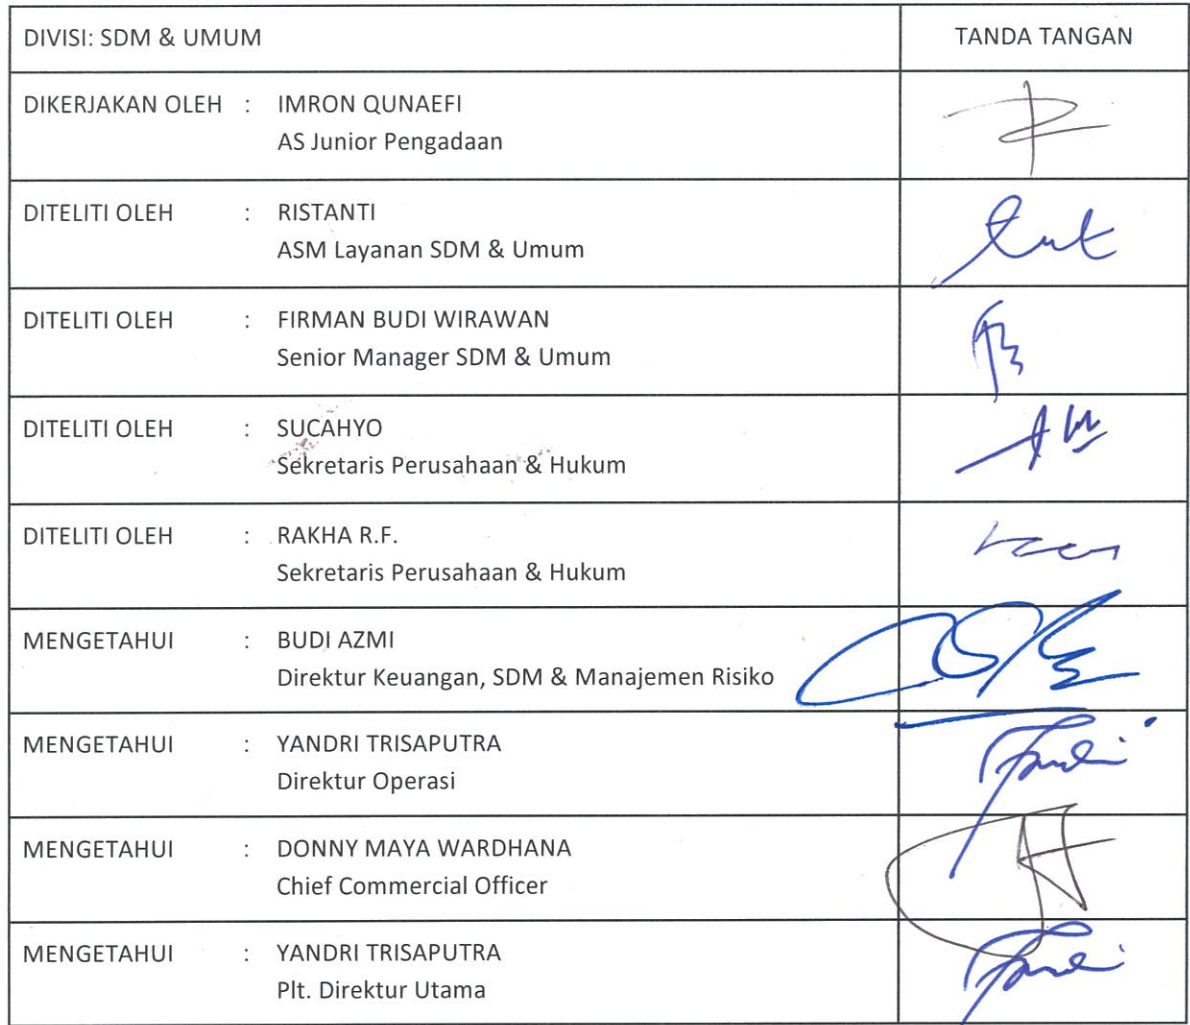 DIVISI: SDM & UMUM TANDA TANGAN
DIKERJAKAN OLEH : IMRON QUNAEFI
AS Junior Pengadaan
DITELITI OLEH : RISTANTI
ASM Layanan SDM & Umum
DITELITI OLEH : FIRMAN BUDI WIRAWAN
Senior Manager SDM & Umum
DITELITI OLEH : SUCAHYO
Sekretaris Perusahaan & Hukum
DITELITI OLEH : RAKHA R.F.
Sekretaris Perusahaan & Hukum
MENGETAHUI : BUDI AZMI
Direktur Keuangan, SDM & Manajemen Risiko
MENGETAHUI : YANDRI TRISAPUTRA
Direktur Operasi
MENGETAHUI : DONNY MAYA WARDHANA
Chief Commercial Officer
MENGETAHUI : YANDRI TRISAPUTRA
Plt. Direktur Utama